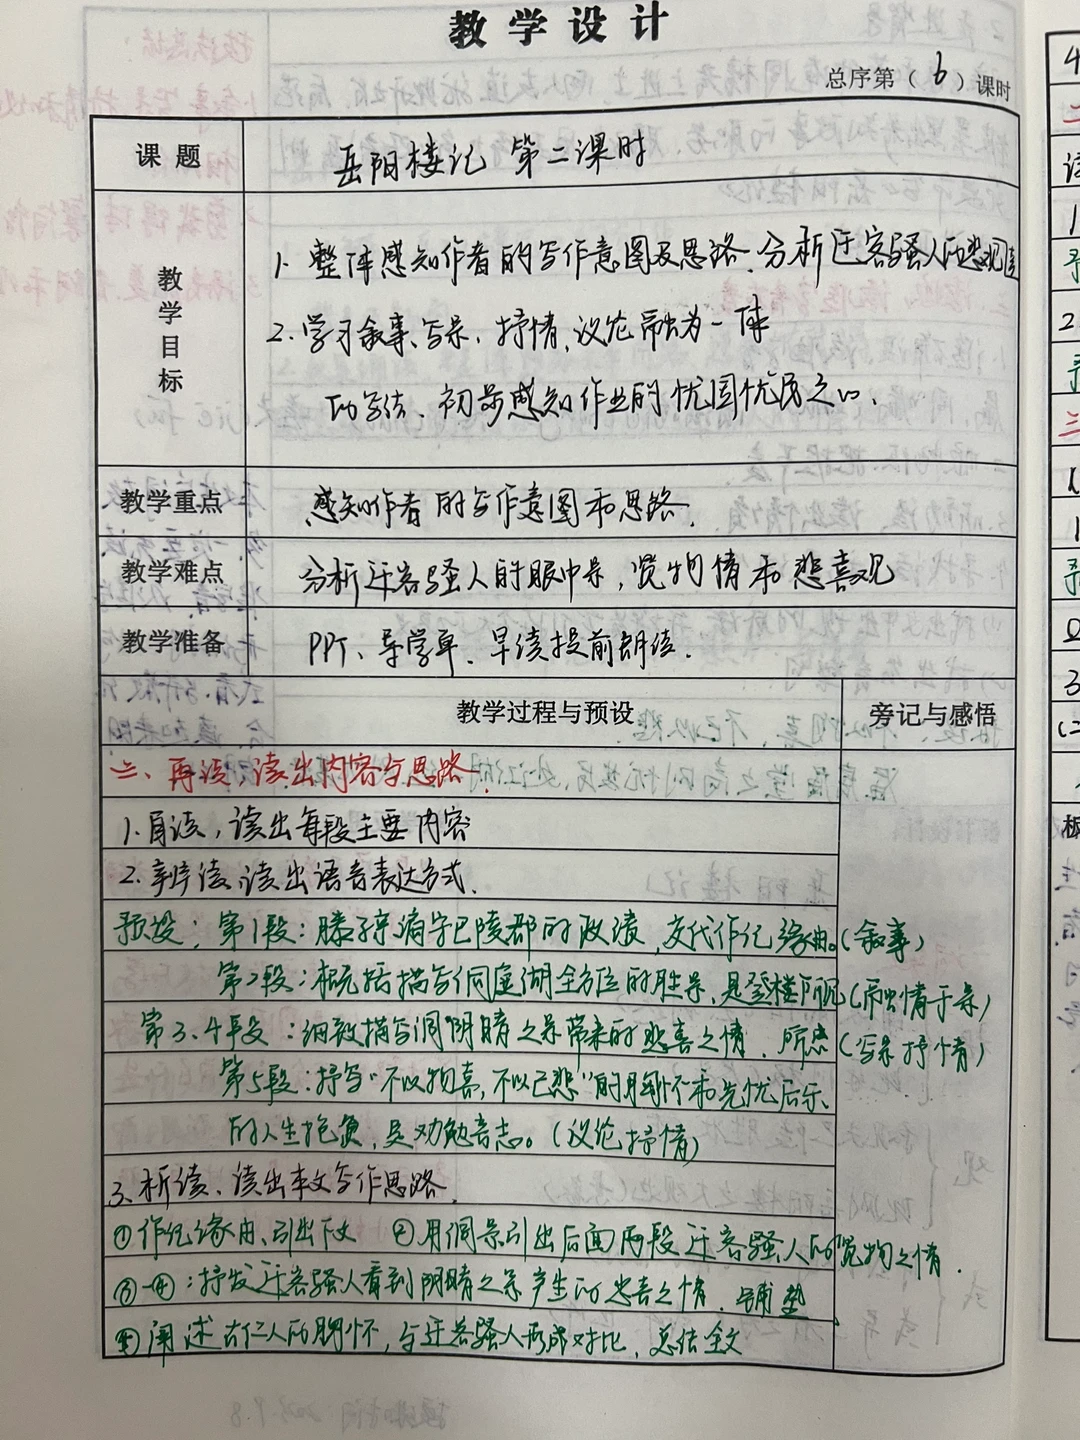 教学设计
总序第（6）课时
课题
岳阳楼记 第二课时
教学目标
1. 整体感知作者的写作意图及思路、分析迁客骚人的悲观情
2. 学习叙事、写景、抒情、议论融为一体
的写法、初步感知作业的忧国忧民之心.
教学重点
感知作者的写作意图和思路.
教学难点
分析迁客骚人的眼中景，览物情和悲喜观
教学准备
PPT、导学单、早读提前朗读.
教学过程与预设
旁记与感悟
二、再读，读出内容与思路.
1. 自读，读出每段主要内容
2. 读，读出语音表达方式.
预设：第1段：滕子京谪守巴陵郡的政绩，交代作记缘由。（叙事）
第2段：概括描写洞庭湖全方位的胜景，是登楼所见（融情于景）
第3、4段：细致描写洞阴晴之景带来的悲喜之情、所感（写景抒情）
第5段：抒写“不以物喜，不以己悲”的胸怀和先忧后乐、
的人生抱负，是劝勉言志。（议论抒情）
3. 析读、读出本文写作思路.
①作记缘由、引出下文 ②用洞景引出后面两段迁客骚人的览物之情.
③-④：抒发迁客骚人看到阴晴之景产生的悲喜之情、铺垫
阐述古仁人的胸怀，与迁客骚人形成对比，总结全文